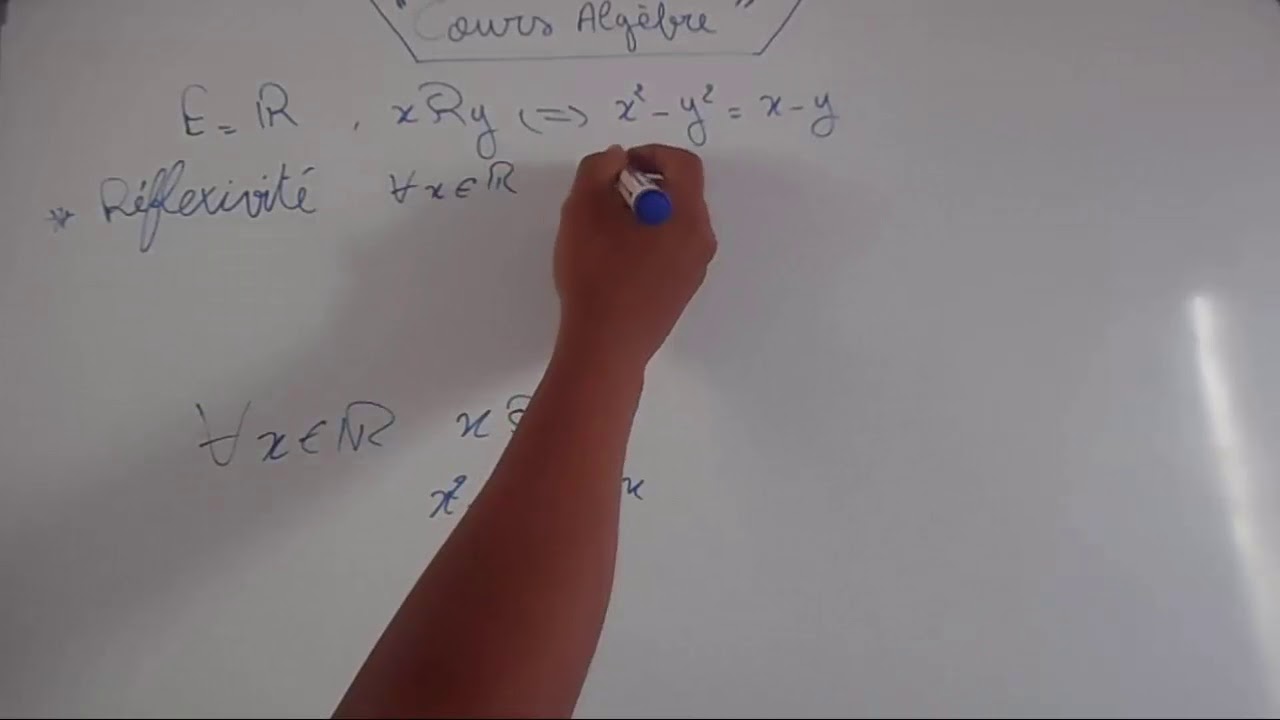 "Cours Algèbre"
E = ℝ , xRy <=> x² - y² = x - y
* Réflexivité ∀x∈ℝ
∀x∈ℝ x
x² x